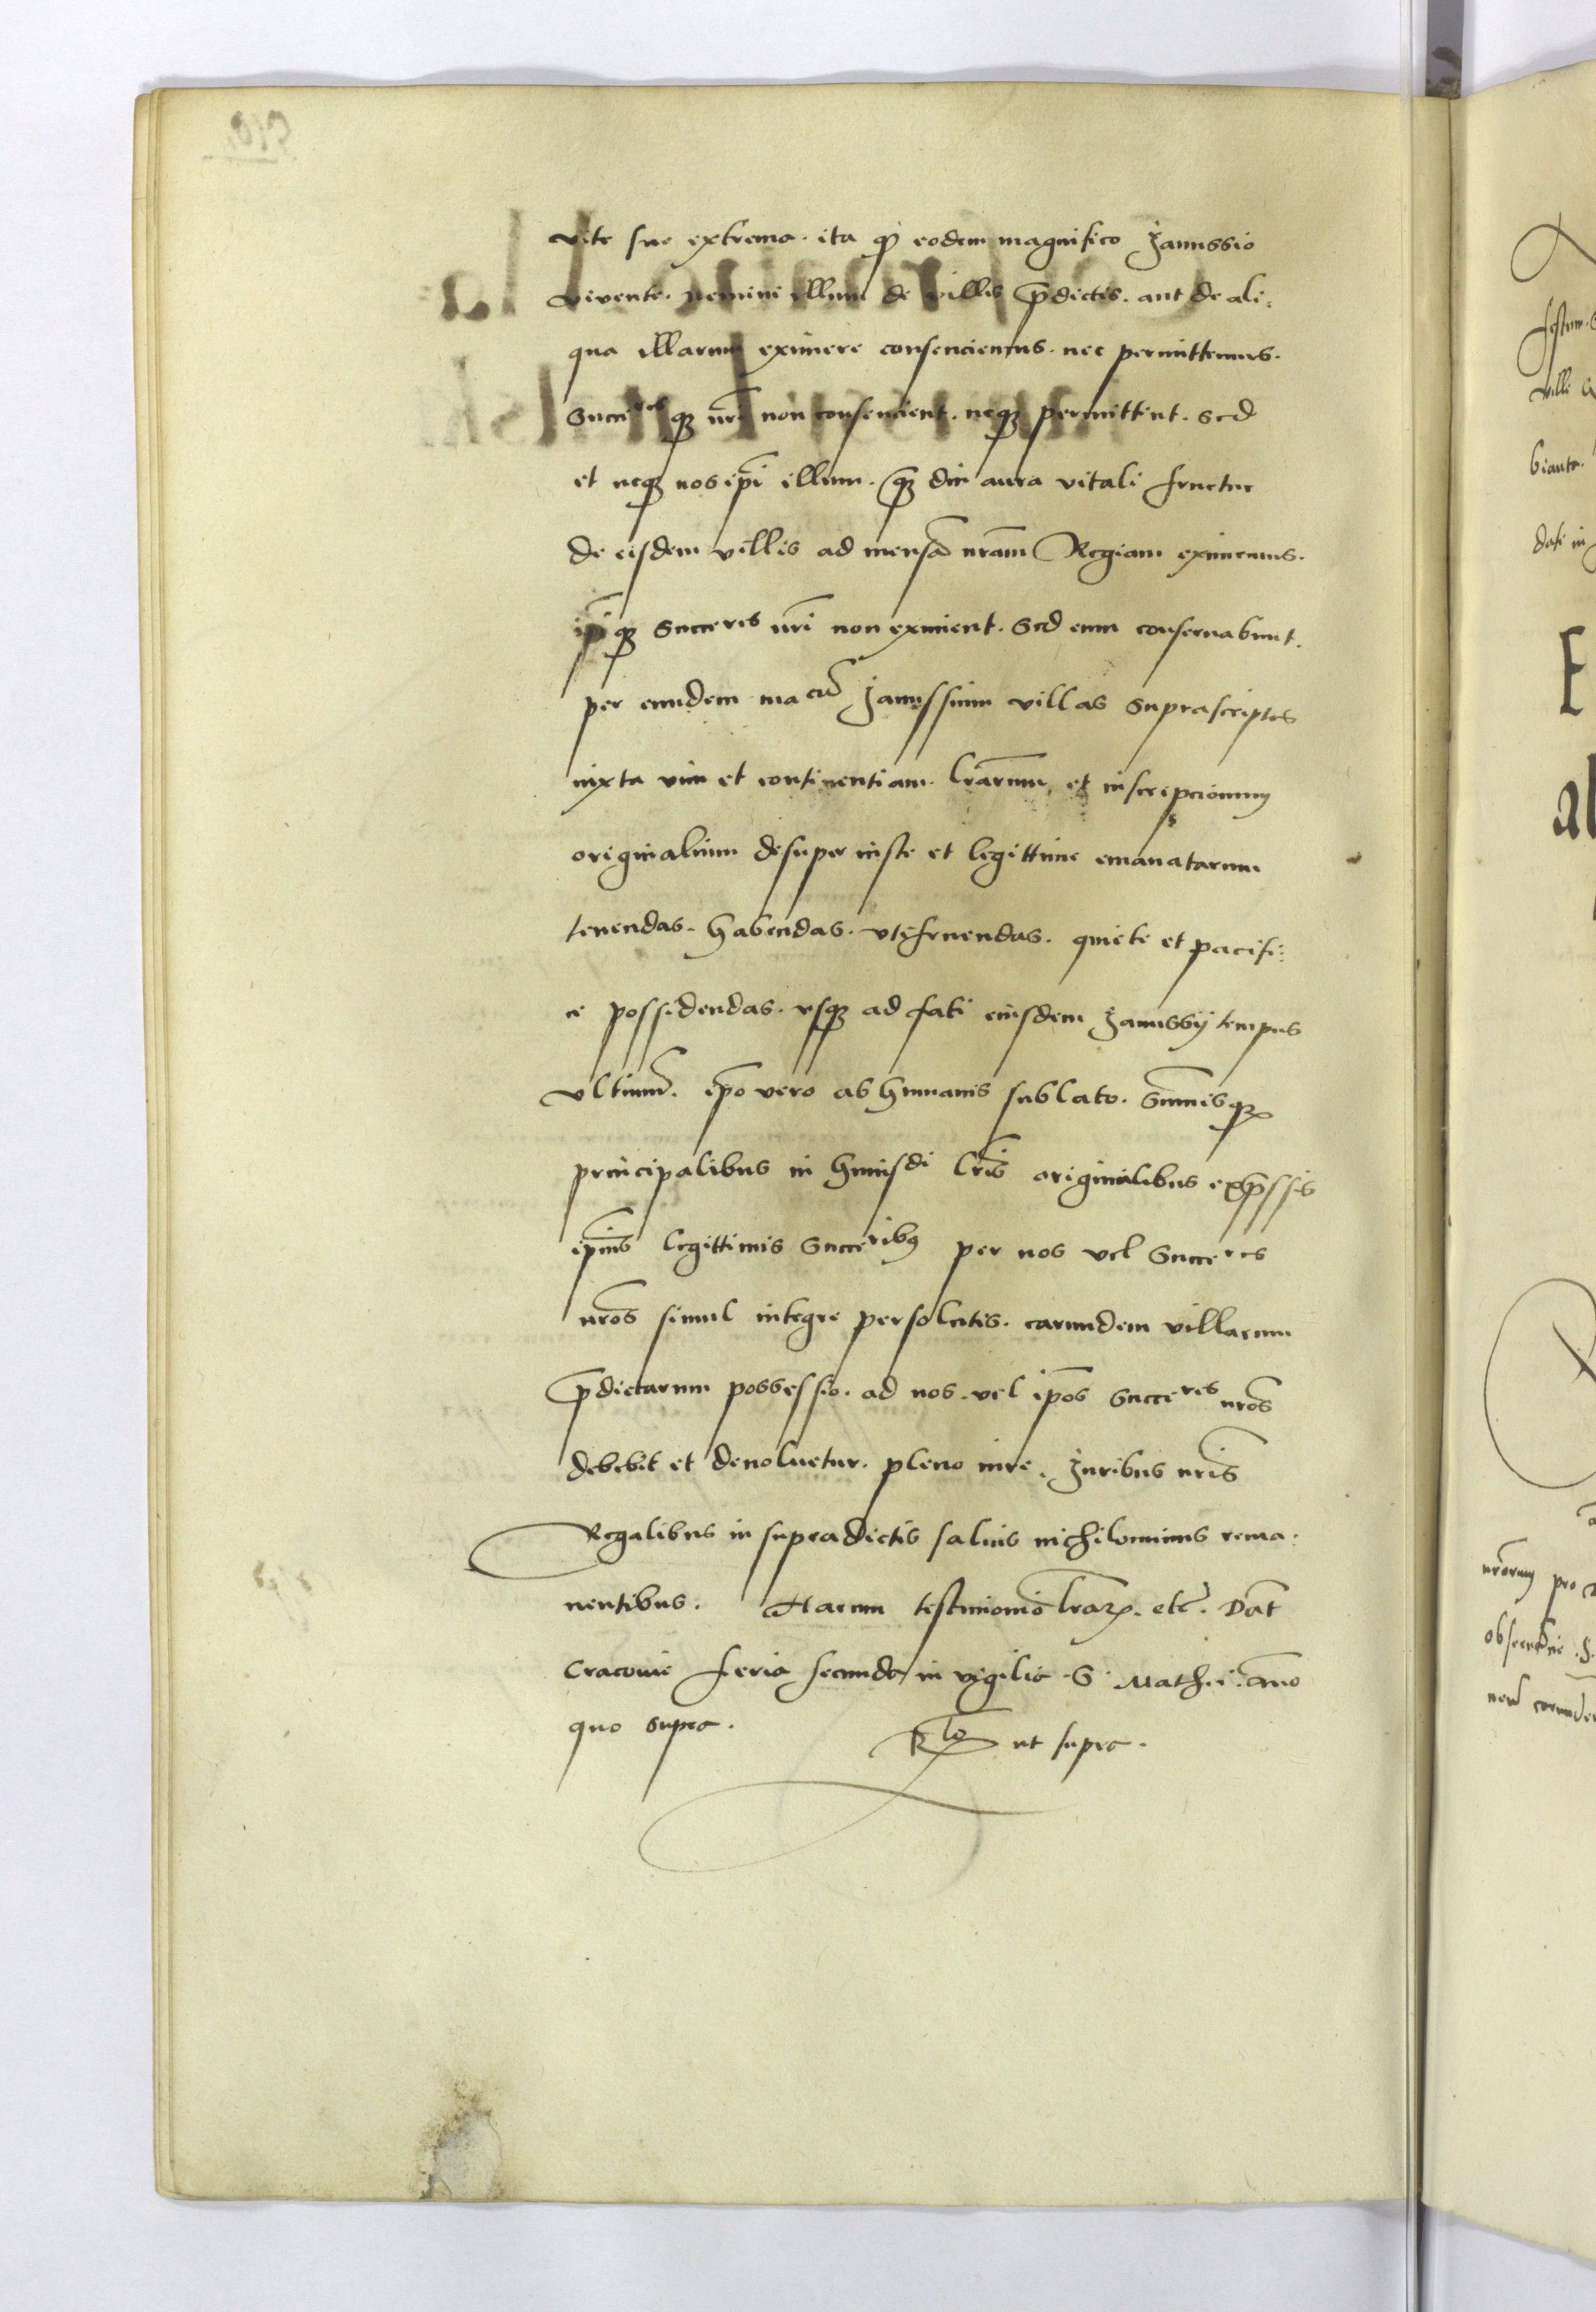 vite sue extrema. ita qd eodem magnifico Janussio
vivente. nemini illum de villis p̄dictis. aut de ali:
qua illarum eximere consenciemus. nec permittemus.
Succres q₃ nri non consencient. neq₃ permittent. Sed
et neq₃ nos ip̄i illum. q̄₃ diu aura vitali fruetur
de eisdem villis ad mensā nrām Regiam eximemus.
ip̄i q₃ Succeres nr̄i non eximent. Sed eum conseruabunt.
per eundem macū Janussium villas suprascriptas
iuxta vim et continentiam. lr̄arum et inscripcionum
originalium desuper iuste et legittime emanatarum
tenendas. habendas. vtifruendas. quiete et pacifi:
ce possidendas. vsq₃ ad fati eiusdem Janussij tempus
vltimū. ip̄o vero ab humanis sublato. Sum̄is q₃
principalibus in huiusdi lr̄is originalibus exp̄ssis
ip̄ius legittimis Succeribus per nos vel Succeres
nr̄os simul integre persolutis. earundem villarum
p̄dictarum possessio. ad nos. vel ip̄os Succeres nr̄os
debebit et deuoluetur. pleno iure. Juribus nr̄is
Regalibus in supradictis saluis nichilominus rema.
nentibus. Harum testimonio lr̄arꝝ. etc̄. Dat̄
Cracouie feria secunda in vigilia S. Mathei. an̄o
quo supra. Rlo ut supra.